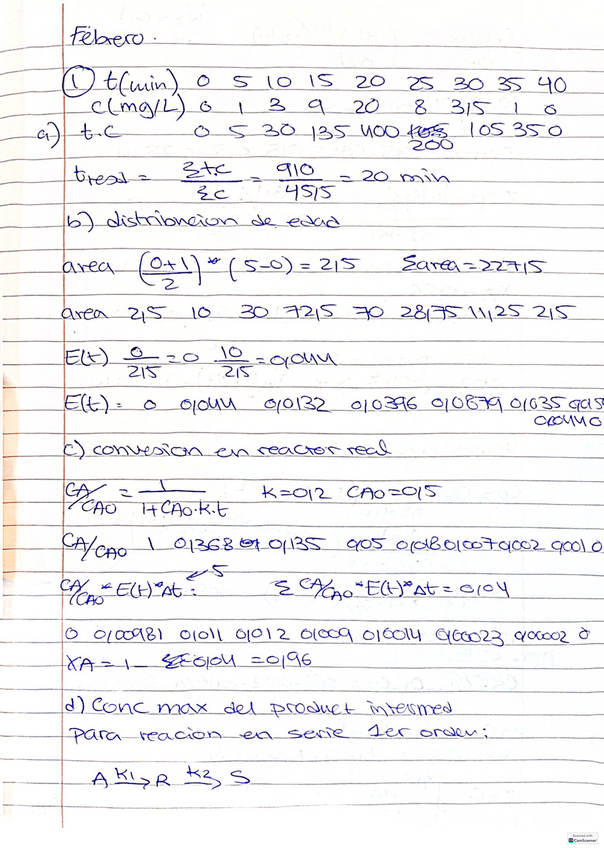 Febrero.
① t(min) 0 5 10 15 20 25 30 35 40
C(mg/L) 0 1 3 9 20 8 3,5 1 0
a) t.c 0 5 30 135 400 200 105 35 0
tresd = Σt.c / Σc = 910 / 45,5 = 20 min
b) distribucion de edad
area (0+1 / 2) * (5-0) = 2,5 Σarea = 227,5
area 2,5 10 30 72,5 70 28,75 11,25 2,5
E(t) 0/2,5 = 0 10/2,5 = 0,044
E(t) = 0 0,044 0,0132 0,0396 0,0879 0,035 0,015
0,0044 0
c) convesion en reactor real
CA/CAO = 1 / 1+CAO.K.t K=0,2 CAO=0,5
CA/CAO 1 0,368 0,135 0,05 0,018 0,007 0,002 0,001 0
CA/CAO * E(t)*Δt : 5 Σ CA/CAO * E(t)*Δt = 0,04
0 0,00981 0,011 0,012 0,009 0,0014 0,00023 0,00002 0
XA = 1 - 0,04 = 0,96
d) Conc max del product intermed
Para reacion en serie 1er orden:
A K1→ R K2→ S
Scanned with
CamScanner